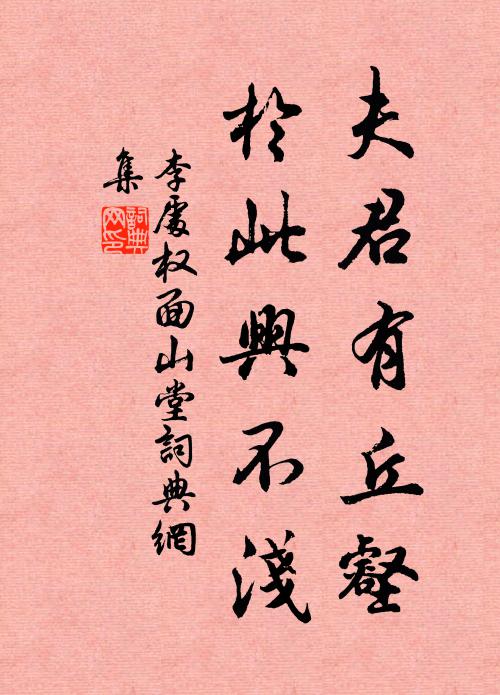 夫君有丘壑
於此興不淺
李處权面山堂詞典網
集
詞典
网印